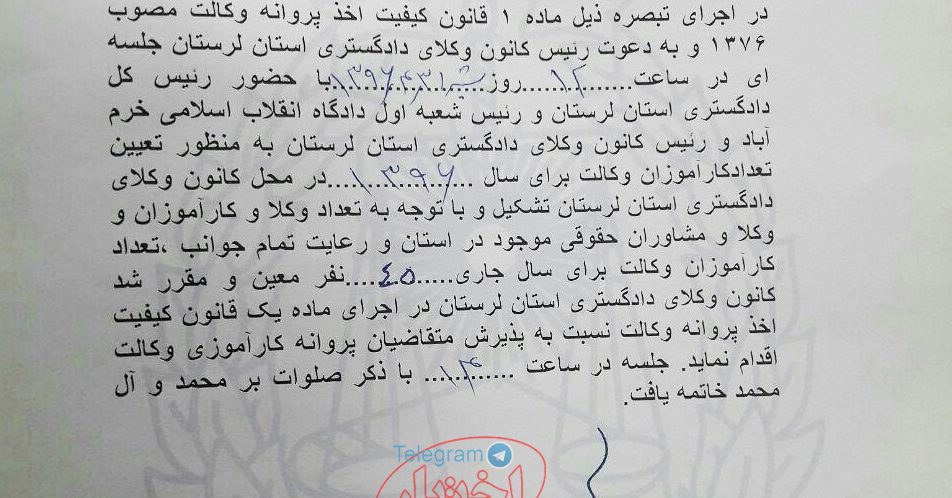 در اجرای تبصره ذیل ماده ۱ قانون کیفیت اخذ پروانه وکالت مصوب
۱۳۷۶ و به دعوت رئیس کانون وکلای دادگستری استان لرستان جلسه
ای در ساعت.......۱۲.......روز.......۱۳۹۶.......با حضور رئیس کل
دادگستری استان لرستان و رئیس شعبه اول دادگاه انقلاب اسلامی خرم
آباد و رئیس کانون وکلای دادگستری استان لرستان به منظور تعیین
تعدادکارآموزان وکالت برای سال .......۱۳۹۶.......در محل کانون وکلای
دادگستری استان لرستان تشکیل و با توجه به تعداد وکلا و کارآموزان و
وکلا و مشاوران حقوقی موجود در استان و رعایت تمام جوانب ،تعداد
کارآموزان وکالت برای سال جاری.......٤٥.......نفر معین و مقرر شد
کانون وکلای دادگستری استان لرستان در اجرای ماده یک قانون کیفیت
اخذ پروانه وکالت نسبت به پذیرش متقاضیان پروانه کارآموزی وکالت
اقدام نماید. جلسه در ساعت .......۱۴....... با ذکر صلوات بر محمد و آل
محمد خاتمه یافت.
Telegram
اختبار